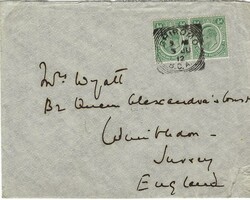 Mrs Wyatt
B2 Queen Alexandra's Court
Wimbledon
Surrey
England